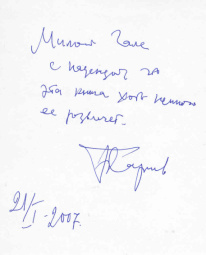 Милой Гале
с надеждой, что
эта книга хоть немного
ее развлечёт.
21/I-2007.